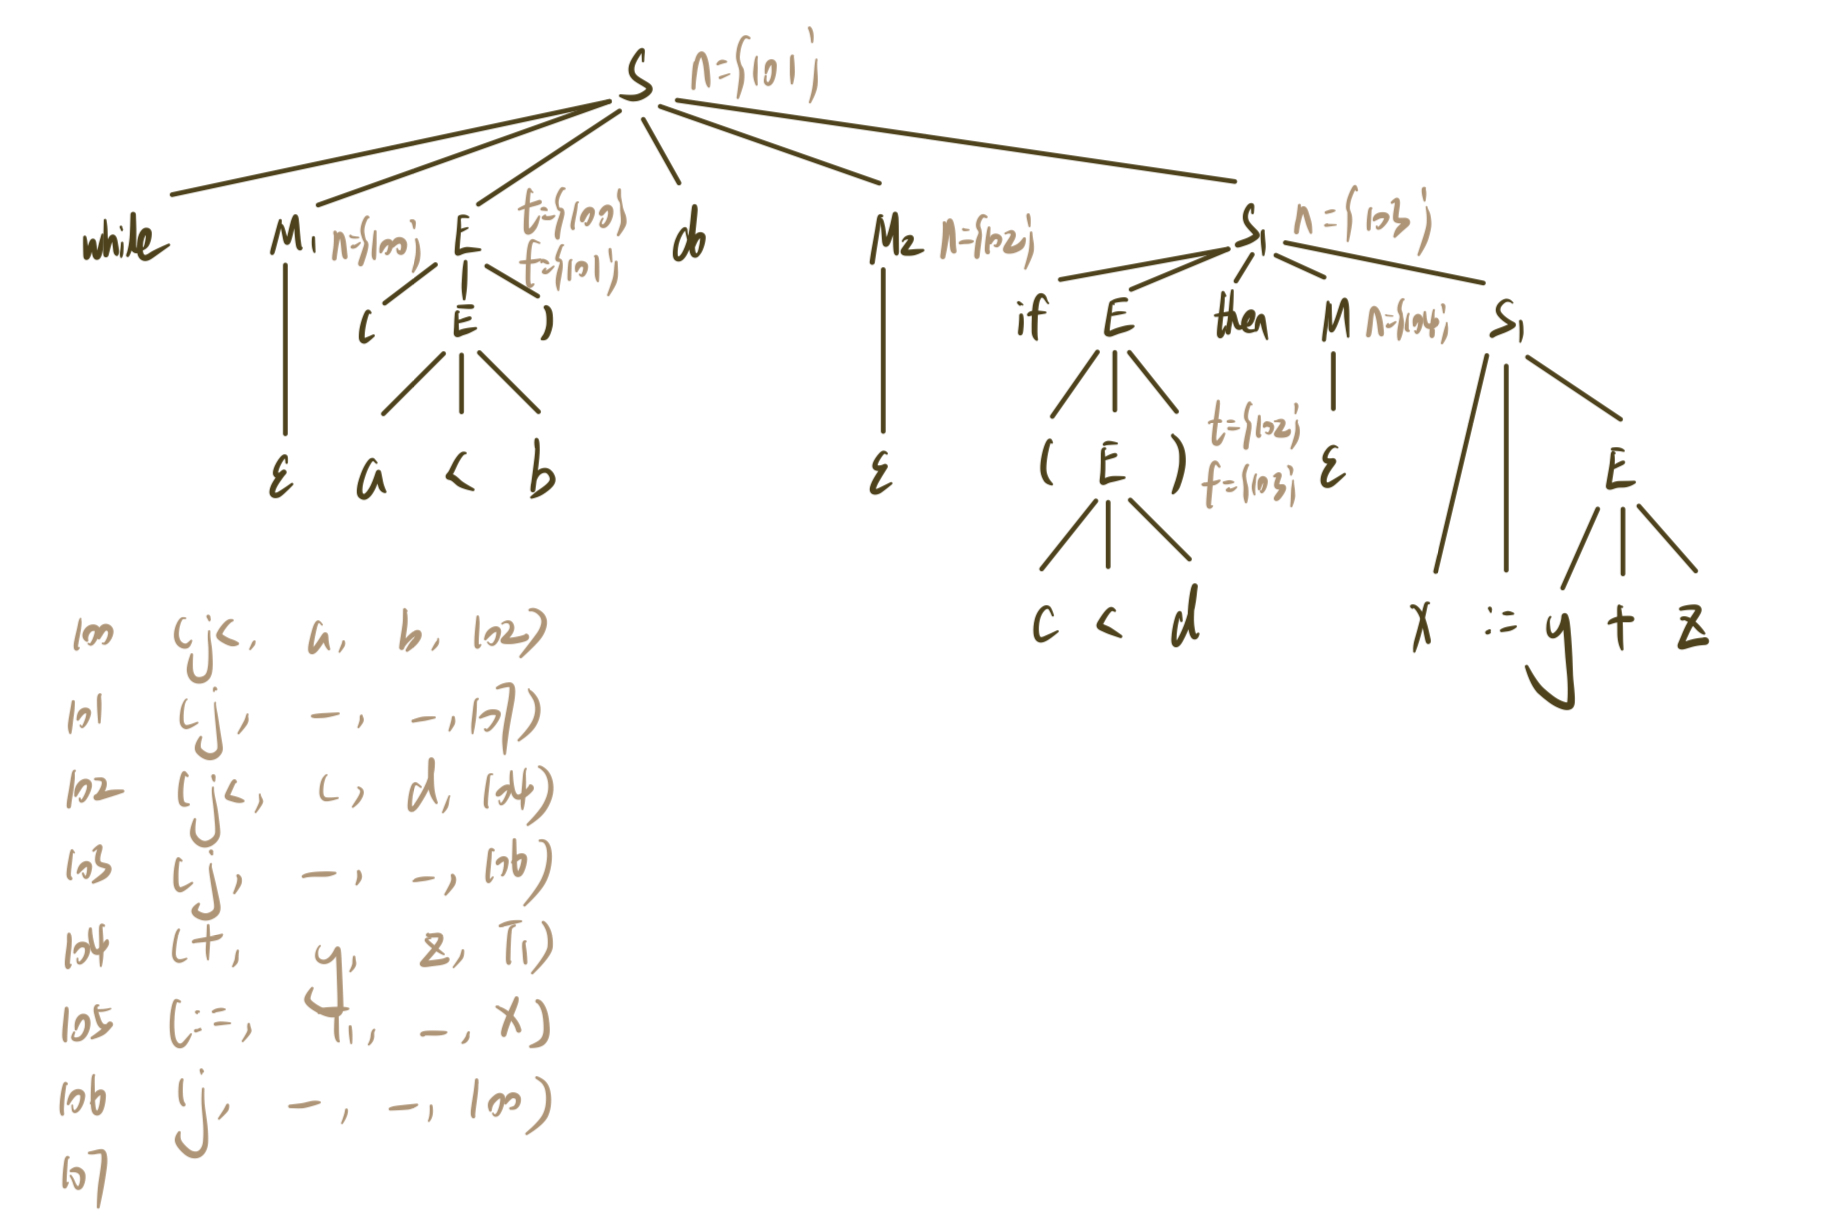 S n={101}
while M1 n={100} E t={100} f={101} do M2 n={102} S1 n={103}
( E ) if E then M n={104} S1
ε a < b ε ( E ) t={102} f={103} ε E
c < d x := y + z
100 (j<, a, b, 102)
101 (j, -, -, 107)
102 (j<, c, d, 104)
103 (j, -, -, 106)
104 (+, y, z, T1)
105 (:=, T1, -, x)
106 (j, -, -, 100)
107